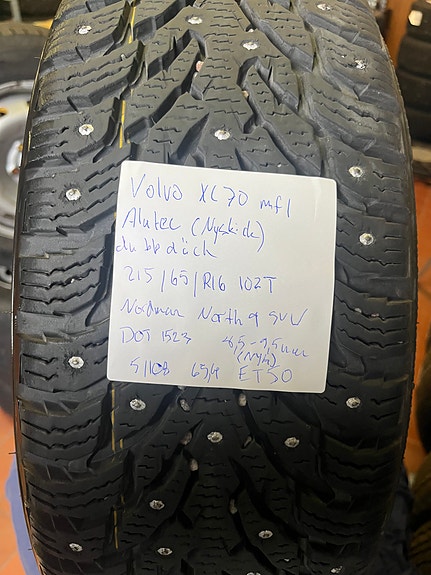 Volvo XC70 mfl
Alutec (Nyskick)
dubbdäck
215/65/R16 102T
Nordman North 9 SUV
DOT 1523 8,5-9,5mm
(Nytt)
5/108 65,1 ET50